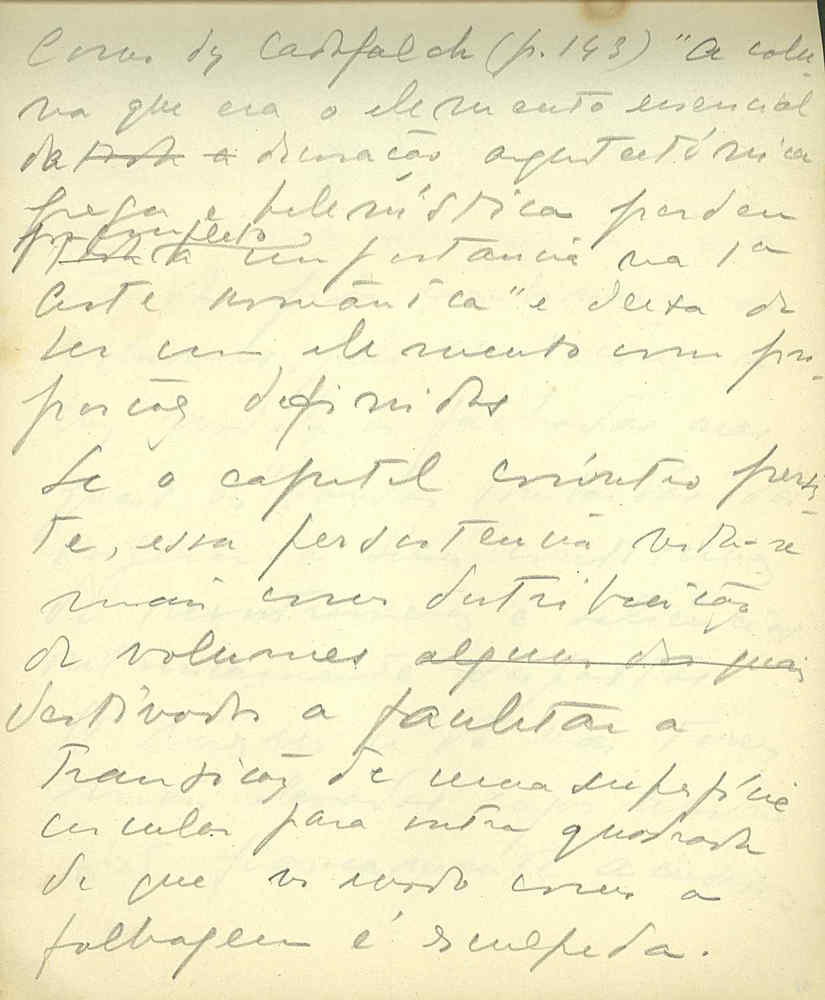 Como diz Cadafalch (p. 143) "A colu-
na que era o elemento essencial
da toda a decoração arquitectónica
grega e helenística perdeu
por completo
toda a importancia na 1ª
Arte românica" e deixa de
ser um elemento com pro-
porções definidas
Se o capitel coríntio persis-
te, essa persistencia nota-se
mais como distribuição
de volumes alguns dos quais
destinados a facilitar a
transição de uma superfície
circular para outra quadrada
do que no modo como a
folhagem é esculpida.